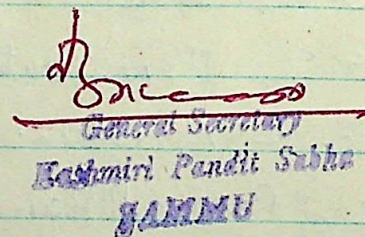 General Secretary
Kashmiri Pandit Sabha
JAMMU